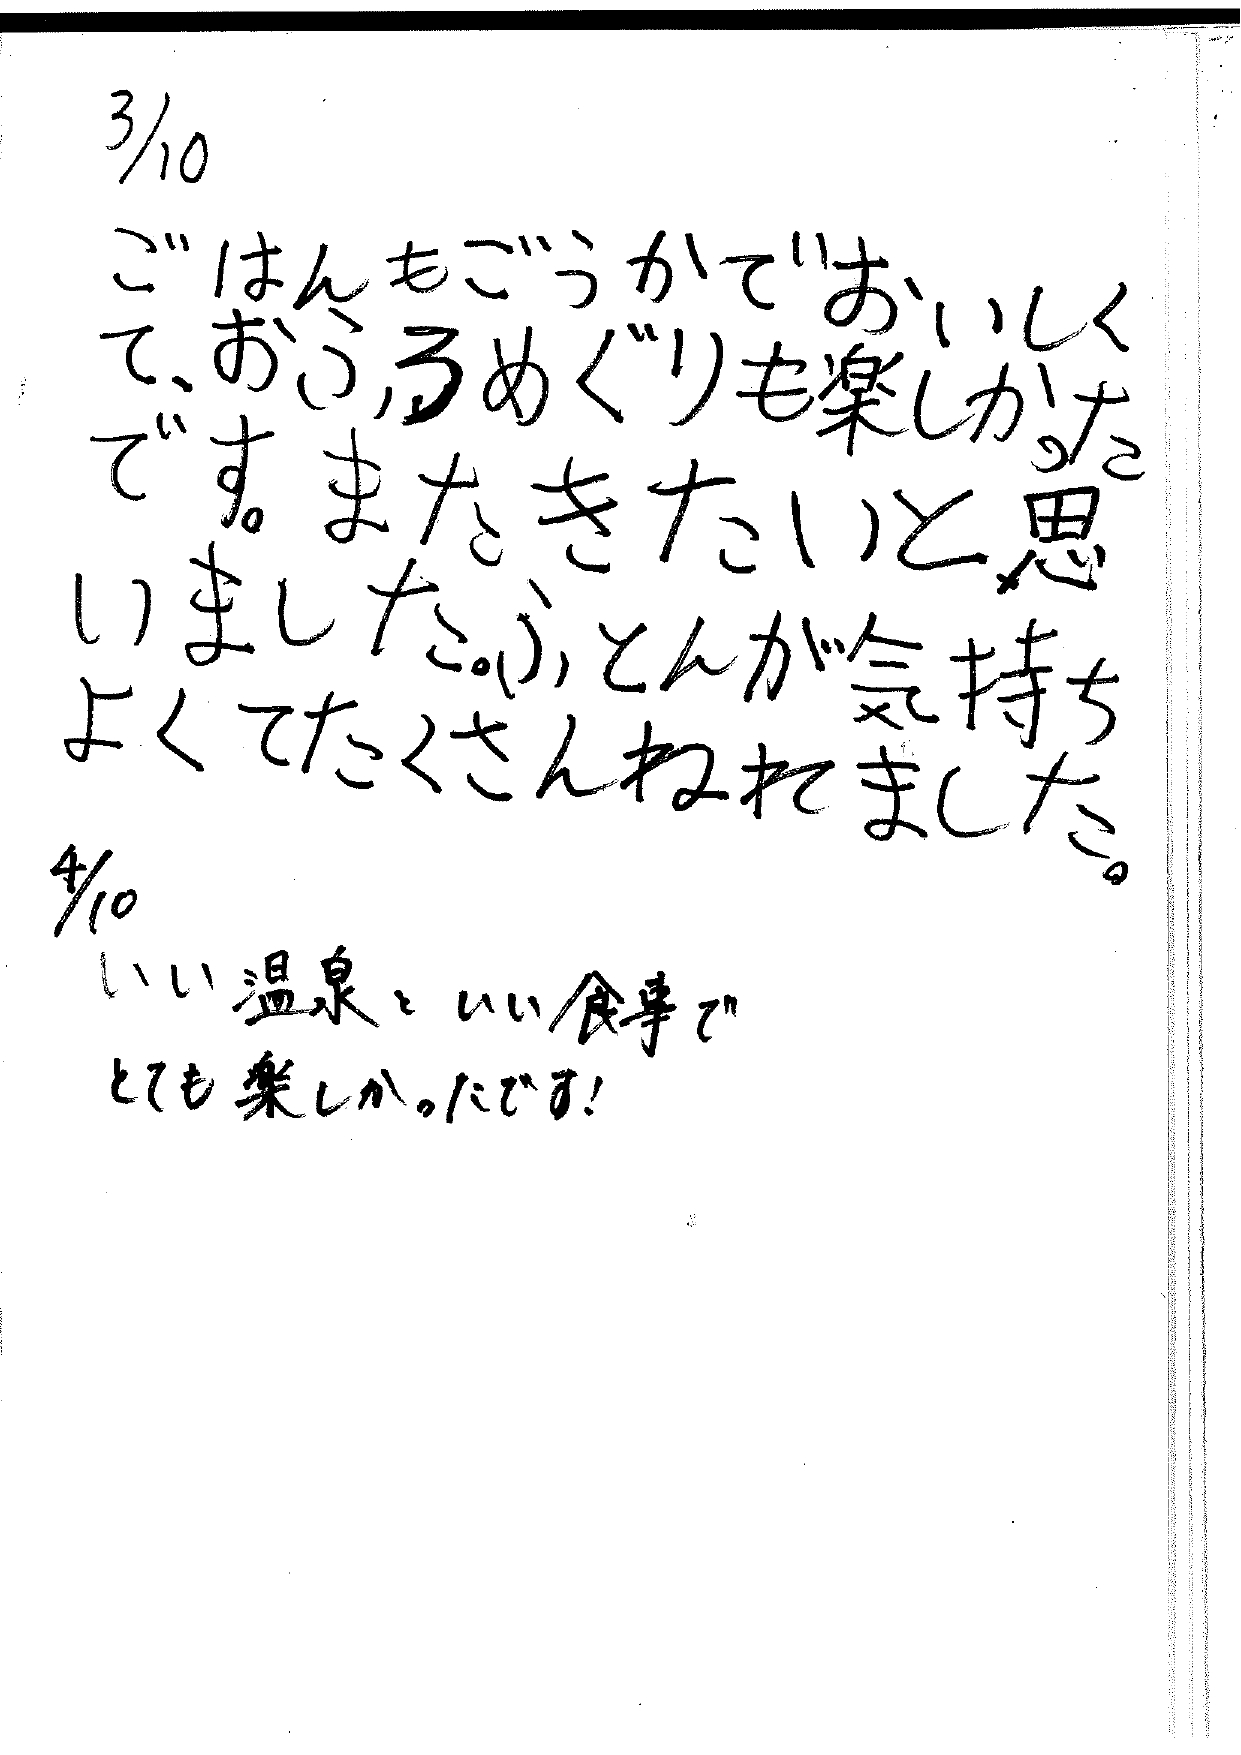 3/10
ごはんもごうかでおいしく
て、おふろめぐりも楽しかった
です。またきたいと思
いました。ふとんが気持ち
よくてたくさんねれました。
4/10
いい温泉といい食事で
とても楽しかったです!